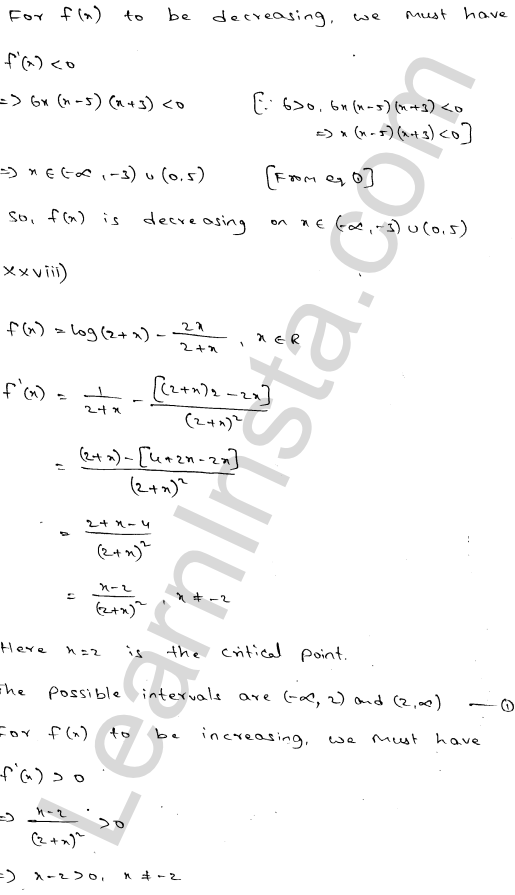 For f(x) to be decreasing, we must have
f'(x) < 0
=> 6x (x-5) (x+3) < 0 [∵ 6>0, 6x(x-5)(x+3) < 0
=> x (x-5)(x+3) < 0]
=> x ∈ (-∞, -3) ∪ (0,5) [From eq ①]
So, f(x) is decreasing on x ∈ (-∞, -3) ∪ (0,5)
xxviii)
f(x) = log(2+x) - 2x/(2+x), x ∈ R
f'(x) = 1/(2+x) - [(2+x)2 - 2x]/(2+x)²
= (2+x) - [4+2x-2x]/(2+x)²
= 2+x-4/(2+x)²
= x-2/(2+x)², x ≠ -2
Here x=2 is the critical point.
The possible intervals are (-∞, 2) and (2, ∞) —①
For f(x) to be increasing, we must have
f'(x) > 0
=> x-2/(2+x)² > 0
=> x-2>0, x ≠ -2
LearnInsta.com